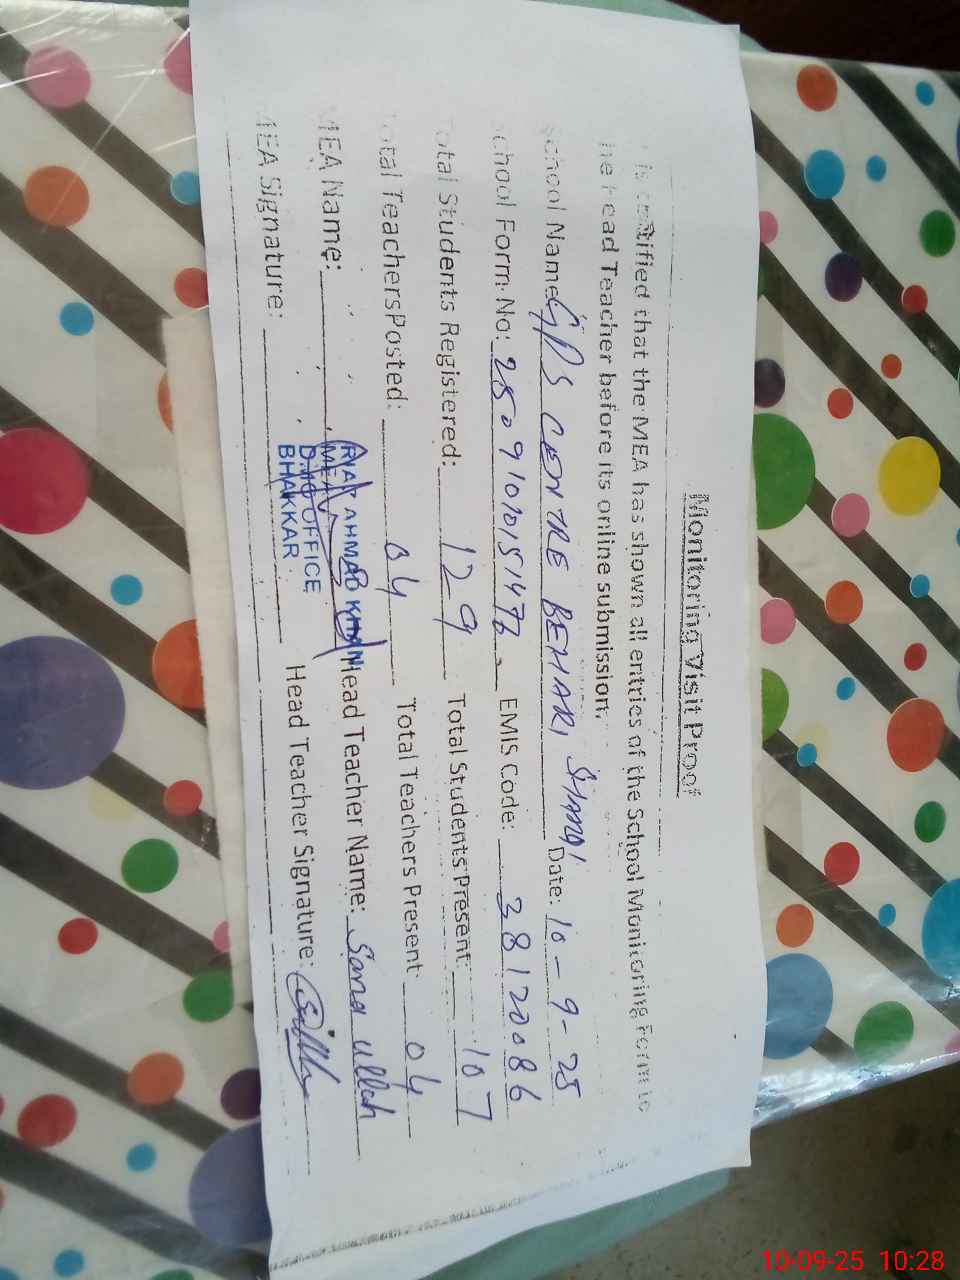 Monitoring Visit Proof
is certified that the MEA has shown all entries of the School Monitoring Form to
he Head Teacher before its online submission.
School Name: GPS CENTRE BEHARI Date: 10-9-25
School Form No: EMIS Code: 38120086
Total Students Registered: 129 Total Students Present: 107
Total Teachers Posted: 04 Total Teachers Present: 04
MEA Name: Head Teacher Name: Sana ullah
RIAZ AHMAD KHAN
MEA
D.M.O OFFICE
BHAKKAR
MEA Signature: Head Teacher Signature:
10-09-25 10:28